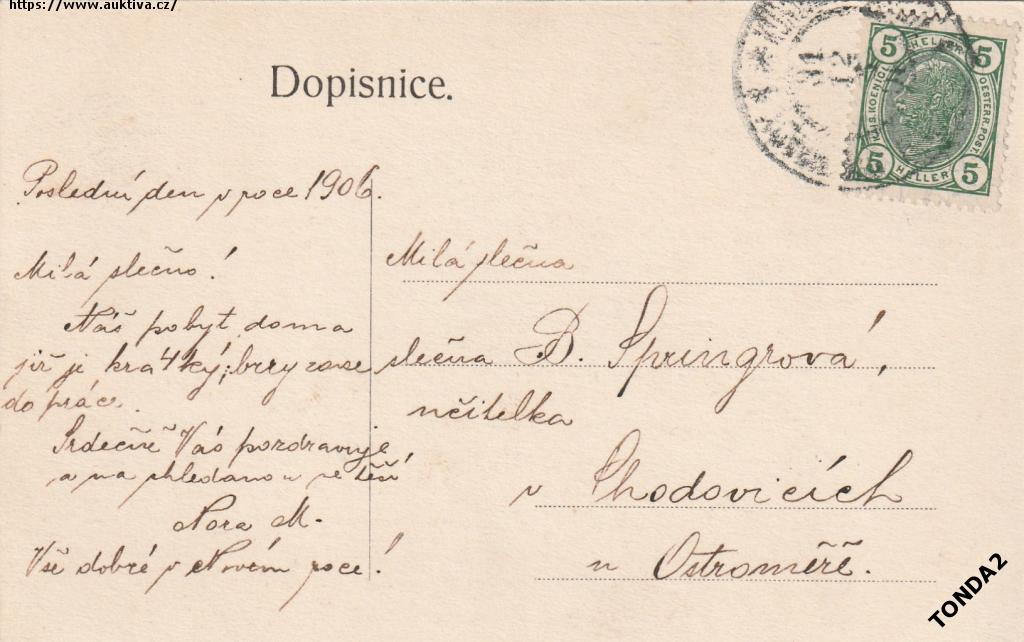 https://www.auktiva.cz/
Dopisnice.
5 HELLER 5
KAIS. KOENIGL.
OESTERR. POST.
5 HELLER 5
31
12
Poslední den v roce 1906.
Milá slečno!
Náš pobyt doma
již je krátký; brzy zase
do práce.
Srdečně Vás pozdravuje
a na shledanou se těší
Nora M.
Vše dobré v Novém roce!
Milá slečna
slečna B. Springrová,
učitelka
v Chodovicích
u Ostroměře.
TONDA2